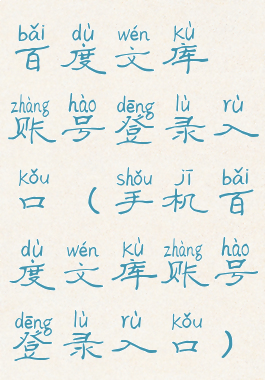 bǎi dù wén kù
百度文库
zhàng hào dēng lù rù
账号登录入
kǒu shǒu jī bǎi
口（手机百
dù wén kù zhàng hào
度文库账号
dēng lù rù kǒu
登录入口）